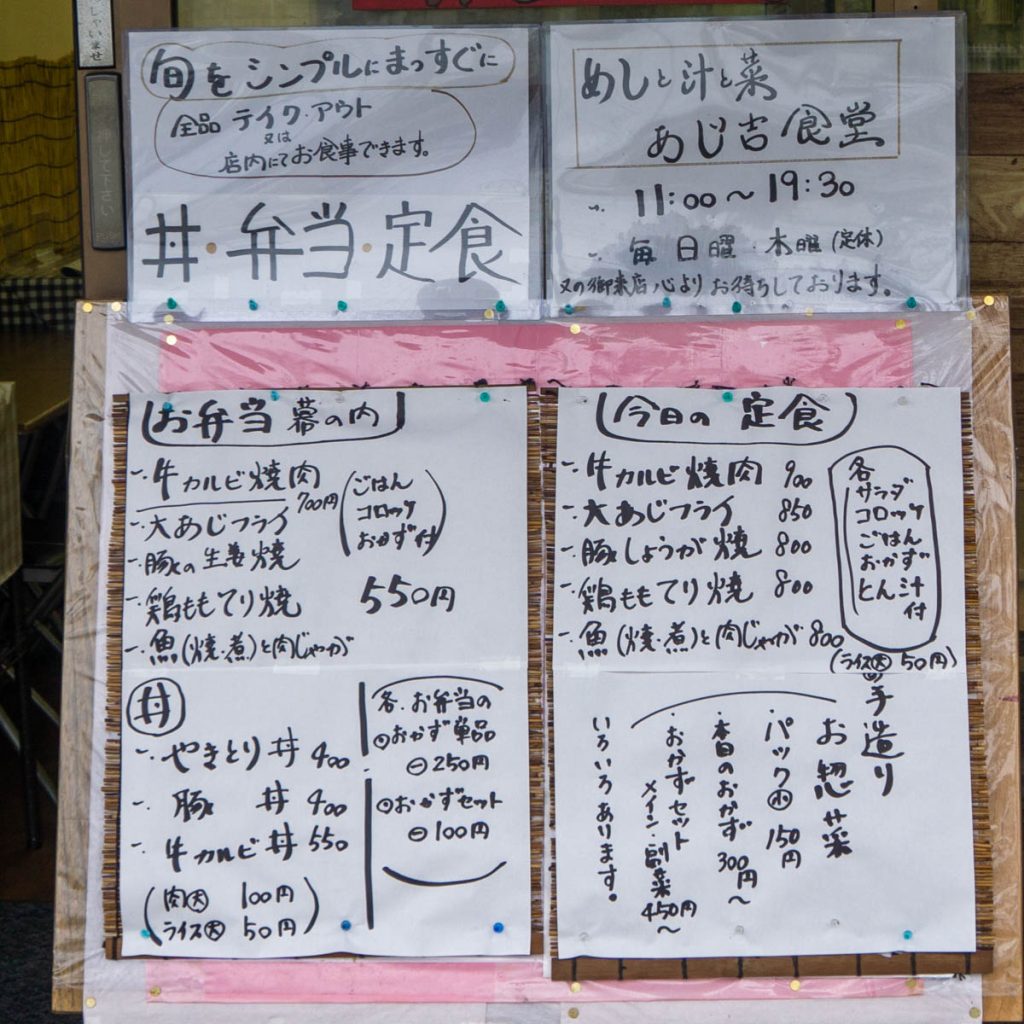 しゃいませ
旬をシンプルにまっすぐに
全品 テイク・アウト
又は
店内にてお食事できます。
丼・弁当・定食
めしと汁と菜
あじ吉食堂
11:00〜19:30
毎日曜・木曜(定休)
又の御来店心よりお待ちしております。
お弁当 幕の内
一. 牛カルビ焼肉 700円
一. 大あじフライ
一. 豚の生姜焼
一. 鶏ももてり焼
一. 魚(焼・煮)と肉じゃが
(ごはん
コロッケ
おかず付)
550円
丼
一. やきとり丼 400
一. 豚 丼 400
一. 牛カルビ丼 550
(肉大 100円
ライス大 50円)
各.お弁当の
おかず単品
⊖250円
おかずセット
⊖100円
今日の 定食
一. 牛カルビ焼肉 900
一. 大あじフライ 850
一. 豚しょうが焼 800
一. 鶏ももてり焼 800
一. 魚(焼・煮)と肉じゃが 800
(ライス大 50円)
各
サラダ
コロッケ
ごはん
おかず
とん汁
付
手造り
お惣菜
パック小 150円
・本日のおかず 300円〜
・おかずセット
メイン・副菜 450円〜
いろいろあります。